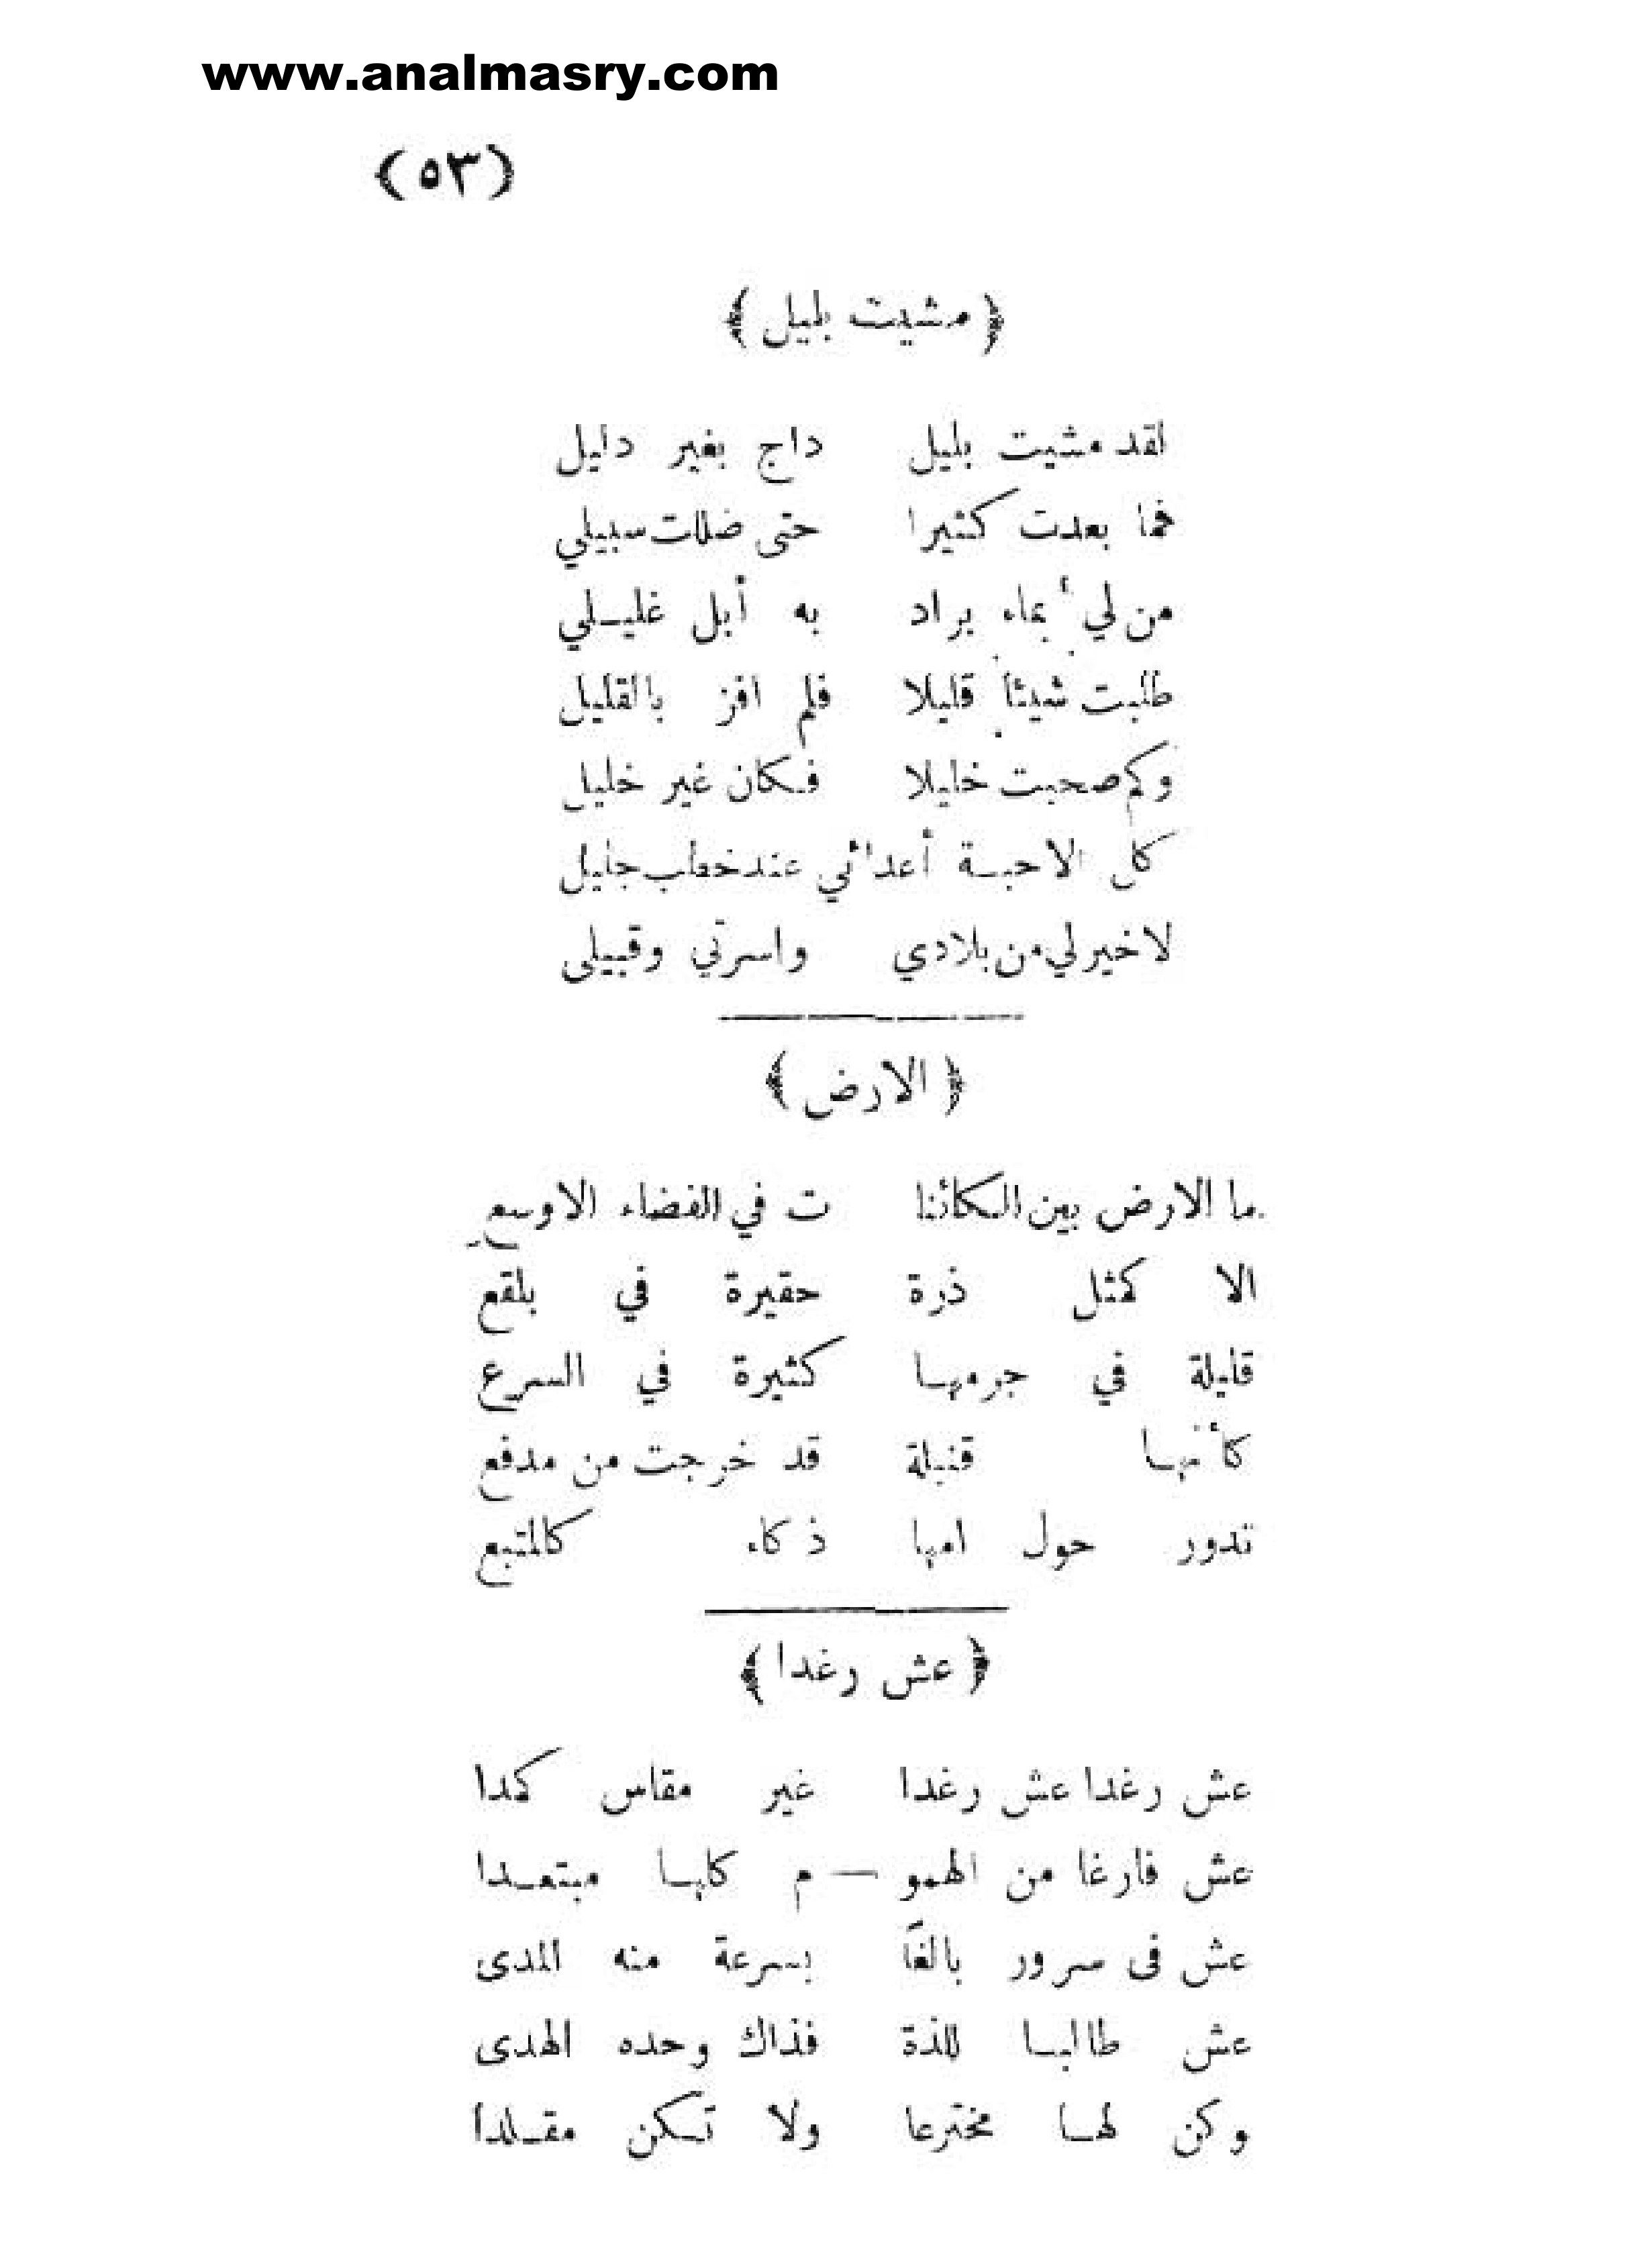 www.analmasry.com
(٥٣)
﴿مشيت بليل﴾
لقد مشيت بليل داج بغير دليل
فما بعدت كثيرا حتى ضللت سبيلي
من لي بماء براد به أبل غليلي
طلبت شيئاً قليلا فلم افز بالقليل
وكم صحبت خليلا فكان غير خليل
كل الاحبة أعدائي عند خطب جليل
لا خير لي من بلادي واسرتي وقبيلى
﴿الارض﴾
ما الارض بين الكائنا ت في الفضاء الاوسع
الا كمثل ذرة حقيرة في بلقع
قليلة في جرمها كثيرة في السرع
كأنها قنبلة قد خرجت من مدفع
تدور حول امها ذكاء كالمتبع
﴿عش رغدا﴾
عش رغدا عش رغدا غير مقاس كمدا
عش فارغا من الهمو — م كلها مبتعدا
عش فى سرور بالغاً بسرعة منه المدى
عش طالبا للذة فذاك وحده الهدى
وكن لها مخترعا ولا تكن مقلدا